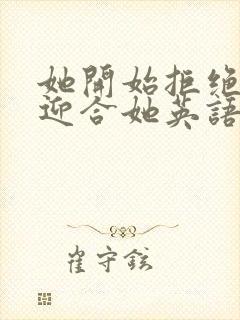 她開始拒絕
迎合她英語
崔守鉉